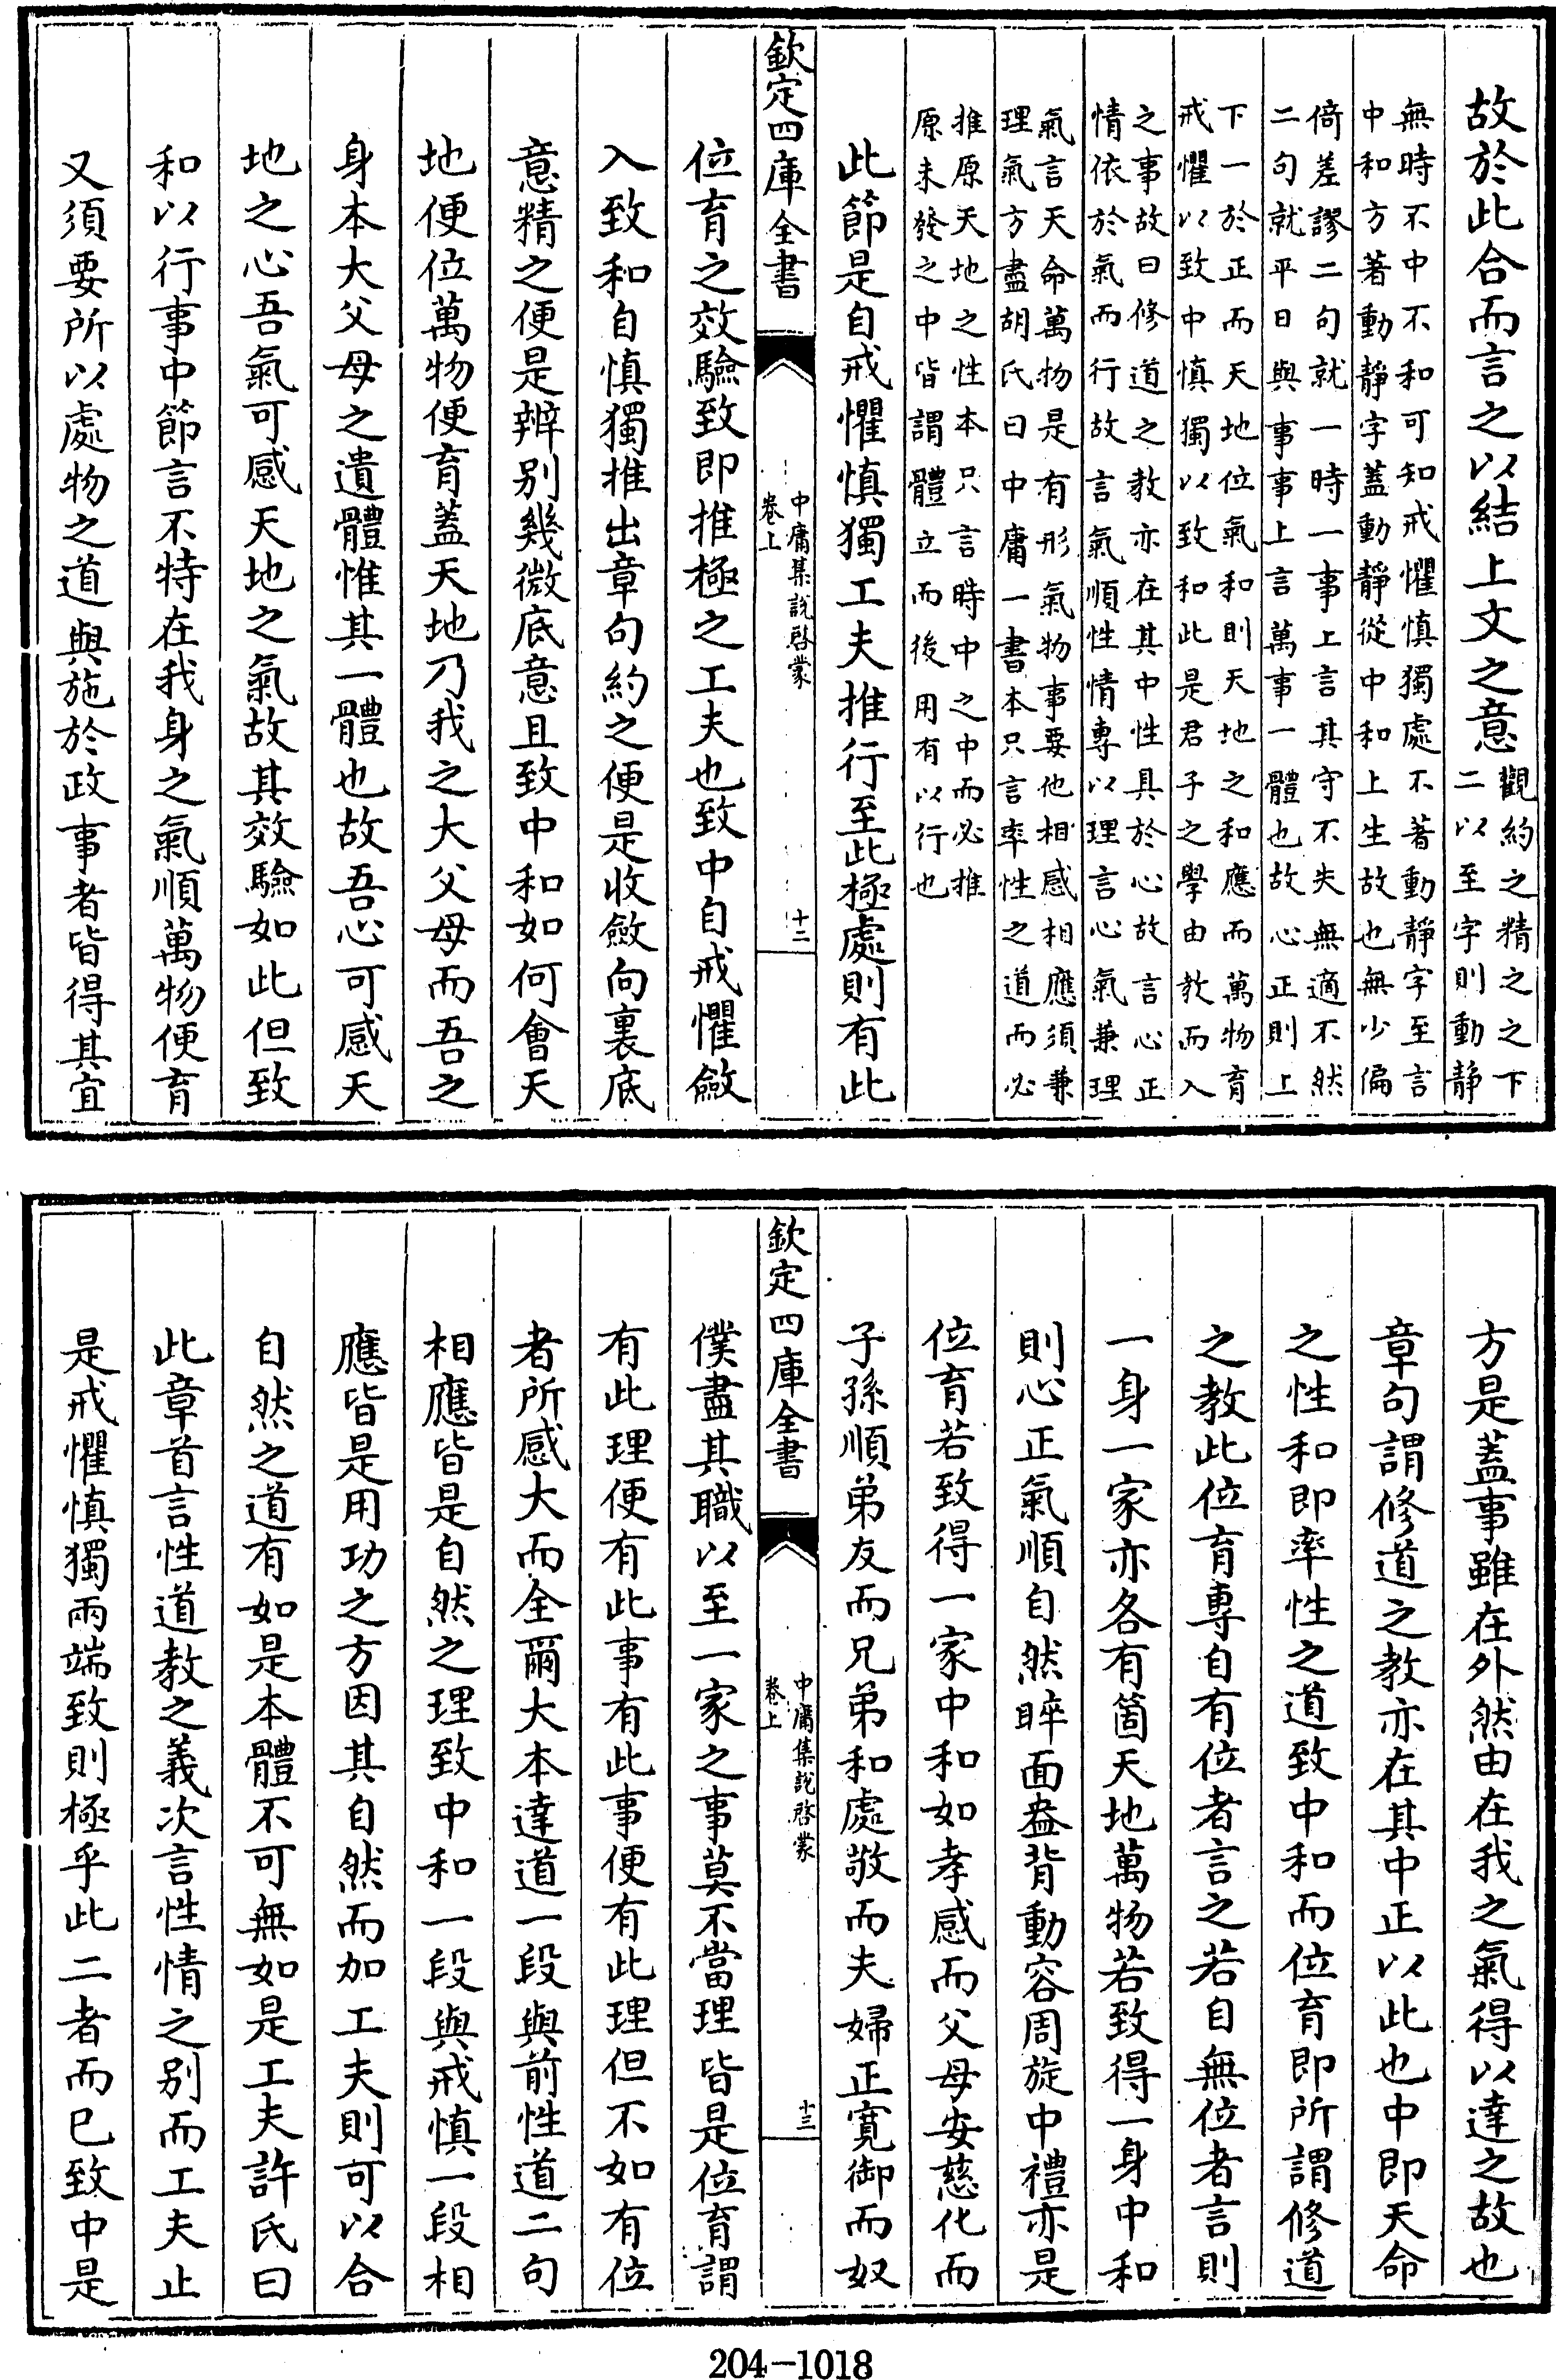 故於此合而言之以結上文之意觀約之精之之下
二以至字則動靜
無時不中不和可知戒懼慎獨處不著動靜字至言
中和方著動靜字蓋動靜從中和上生故也無少偏
倚差謬二句就一時一事上言其守不失無適不然
二句就平日與事事上言萬事一體也故心正則上
下一於正而天地位氣和則天地之和應而萬物育
戒懼以致中慎獨以致和此是君子之學由教而入
之事故曰修道之教亦在其中性具於心故言心正
情依於氣而行故言氣順性情專以理言心氣兼理
氣言天命萬物是有形氣物事要他相感相應須兼
理氣方盡胡氏曰中庸一書本只言率性之道而必
推原天地之性本只言時中之中而必推
原未發之中皆謂體立而後用有以行也
此節是自戒懼慎獨工夫推行至此極處則有此
欽定四庫全書
中庸集説啓蒙
卷上
十二
位育之效驗致即推極之工夫也致中自戒懼斂
入致和自慎獨推出章句約之便是收斂向裏底
意精之便是辨别幾微底意且致中和如何會天
地便位萬物便育蓋天地乃我之大父母而吾之
身本大父母之遺體惟其一體也故吾心可感天
地之心吾氣可感天地之氣故其效驗如此但致
和以行事中節言不特在我身之氣順萬物便育
又須要所以處物之道與施於政事者皆得其宜
方是蓋事雖在外然由在我之氣得以達之故也
章句謂修道之教亦在其中正以此也中即天命
之性和即率性之道致中和而位育即所謂修道
之教此位育專自有位者言之若自無位者言則
一身一家亦各有箇天地萬物若致得一身中和
則心正氣順自然睟面盎背動容周旋中禮亦是
位育若致得一家中和如孝感而父母安慈化而
子孫順弟友而兄弟和處敬而夫婦正寛御而奴
欽定四庫全書
中庸集說啓蒙
卷上
十三
僕盡其職以至一家之事莫不當理皆是位育謂
有此理便有此事有此事便有此理但不如有位
者所感大而全爾大本達道一段與前性道二句
相應皆是自然之理致中和一段與戒慎一段相
應皆是用功之方因其自然而加工夫則可以合
自然之道有如是本體不可無如是工夫許氏曰
此章首言性道教之義次言性情之别而工夫止
是戒懼慎獨兩端致則極乎此二者而已致中是
204-1018